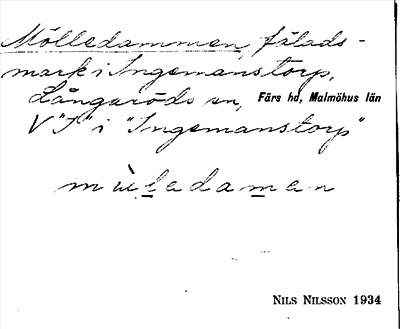 Mölledammen, fälads-
mark i Ingemanstorp,
Långaröds sn, Färs hd, Malmöhus län
V "F" i "Ingemanstorp"
mùledamen
NILS NILSSON 1934